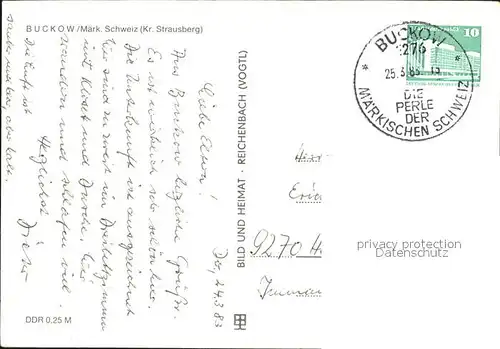 BUCKOW/Märk. Schweiz (Kr. Strausberg)
Do, 24.3.83
Liebe Eltern!
Aus Buckow herzliche Grüße.
Es ist wirklich sehr schön hier.
Die Unterkunft ist ausgezeichnet
wir sind zu zweit im Dreibettzimmer
mit Klosett und Dusche. Wir
wandern und schlafen viel.
Die Luft ist
sauber und klar, aber kalt.
Herzlichst
Dieter
DDR 0,25 M
BILD UND HEIMAT · REICHENBACH (VOGTL)
BUCKOW
1276
25.3.83
DIE
PERLE
DER
MÄRKISCHEN SCHWEIZ
10
9270
privacy protection
Datenschutz